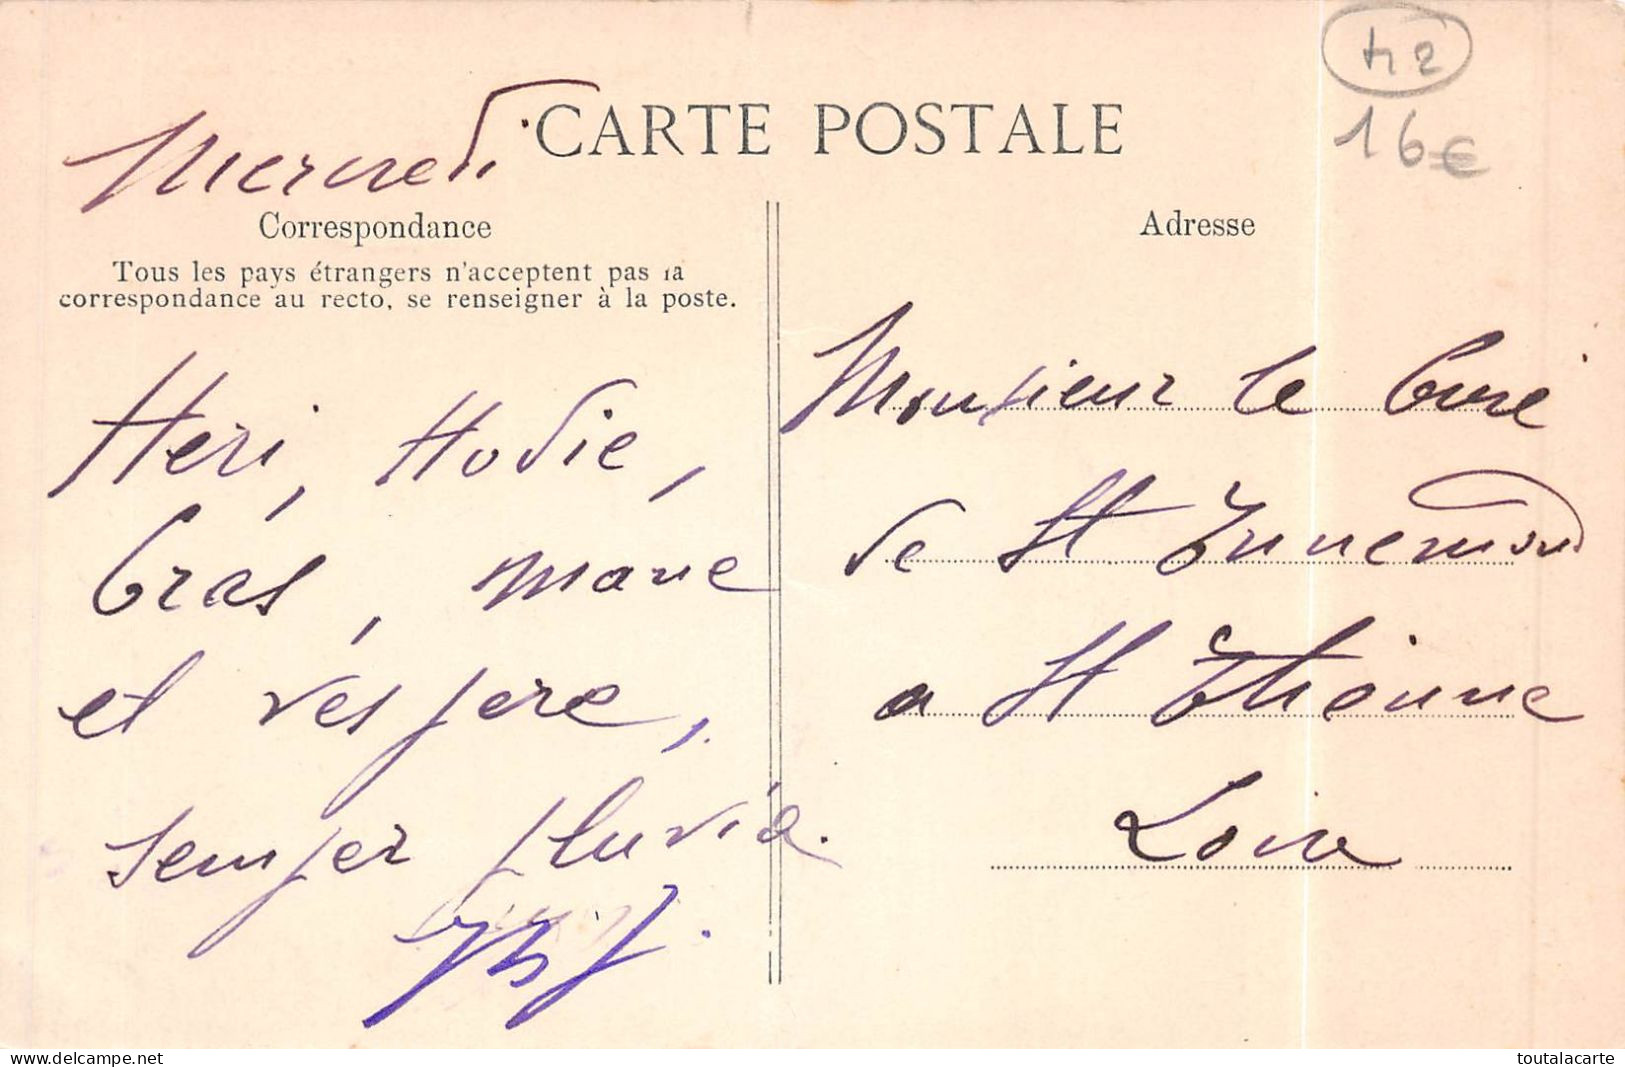 42
16€
Mercredi
CARTE POSTALE
Correspondance
Adresse
Tous les pays étrangers n'acceptent pas la
correspondance au recto, se renseigner à la poste.
Heri, Hodie,
Cras, mane
et vespere,
semper pluvia.
Monsieur le Curé
de St Ennemond
a St Etienne
Loire
www.delcampe.net
toutalacarte